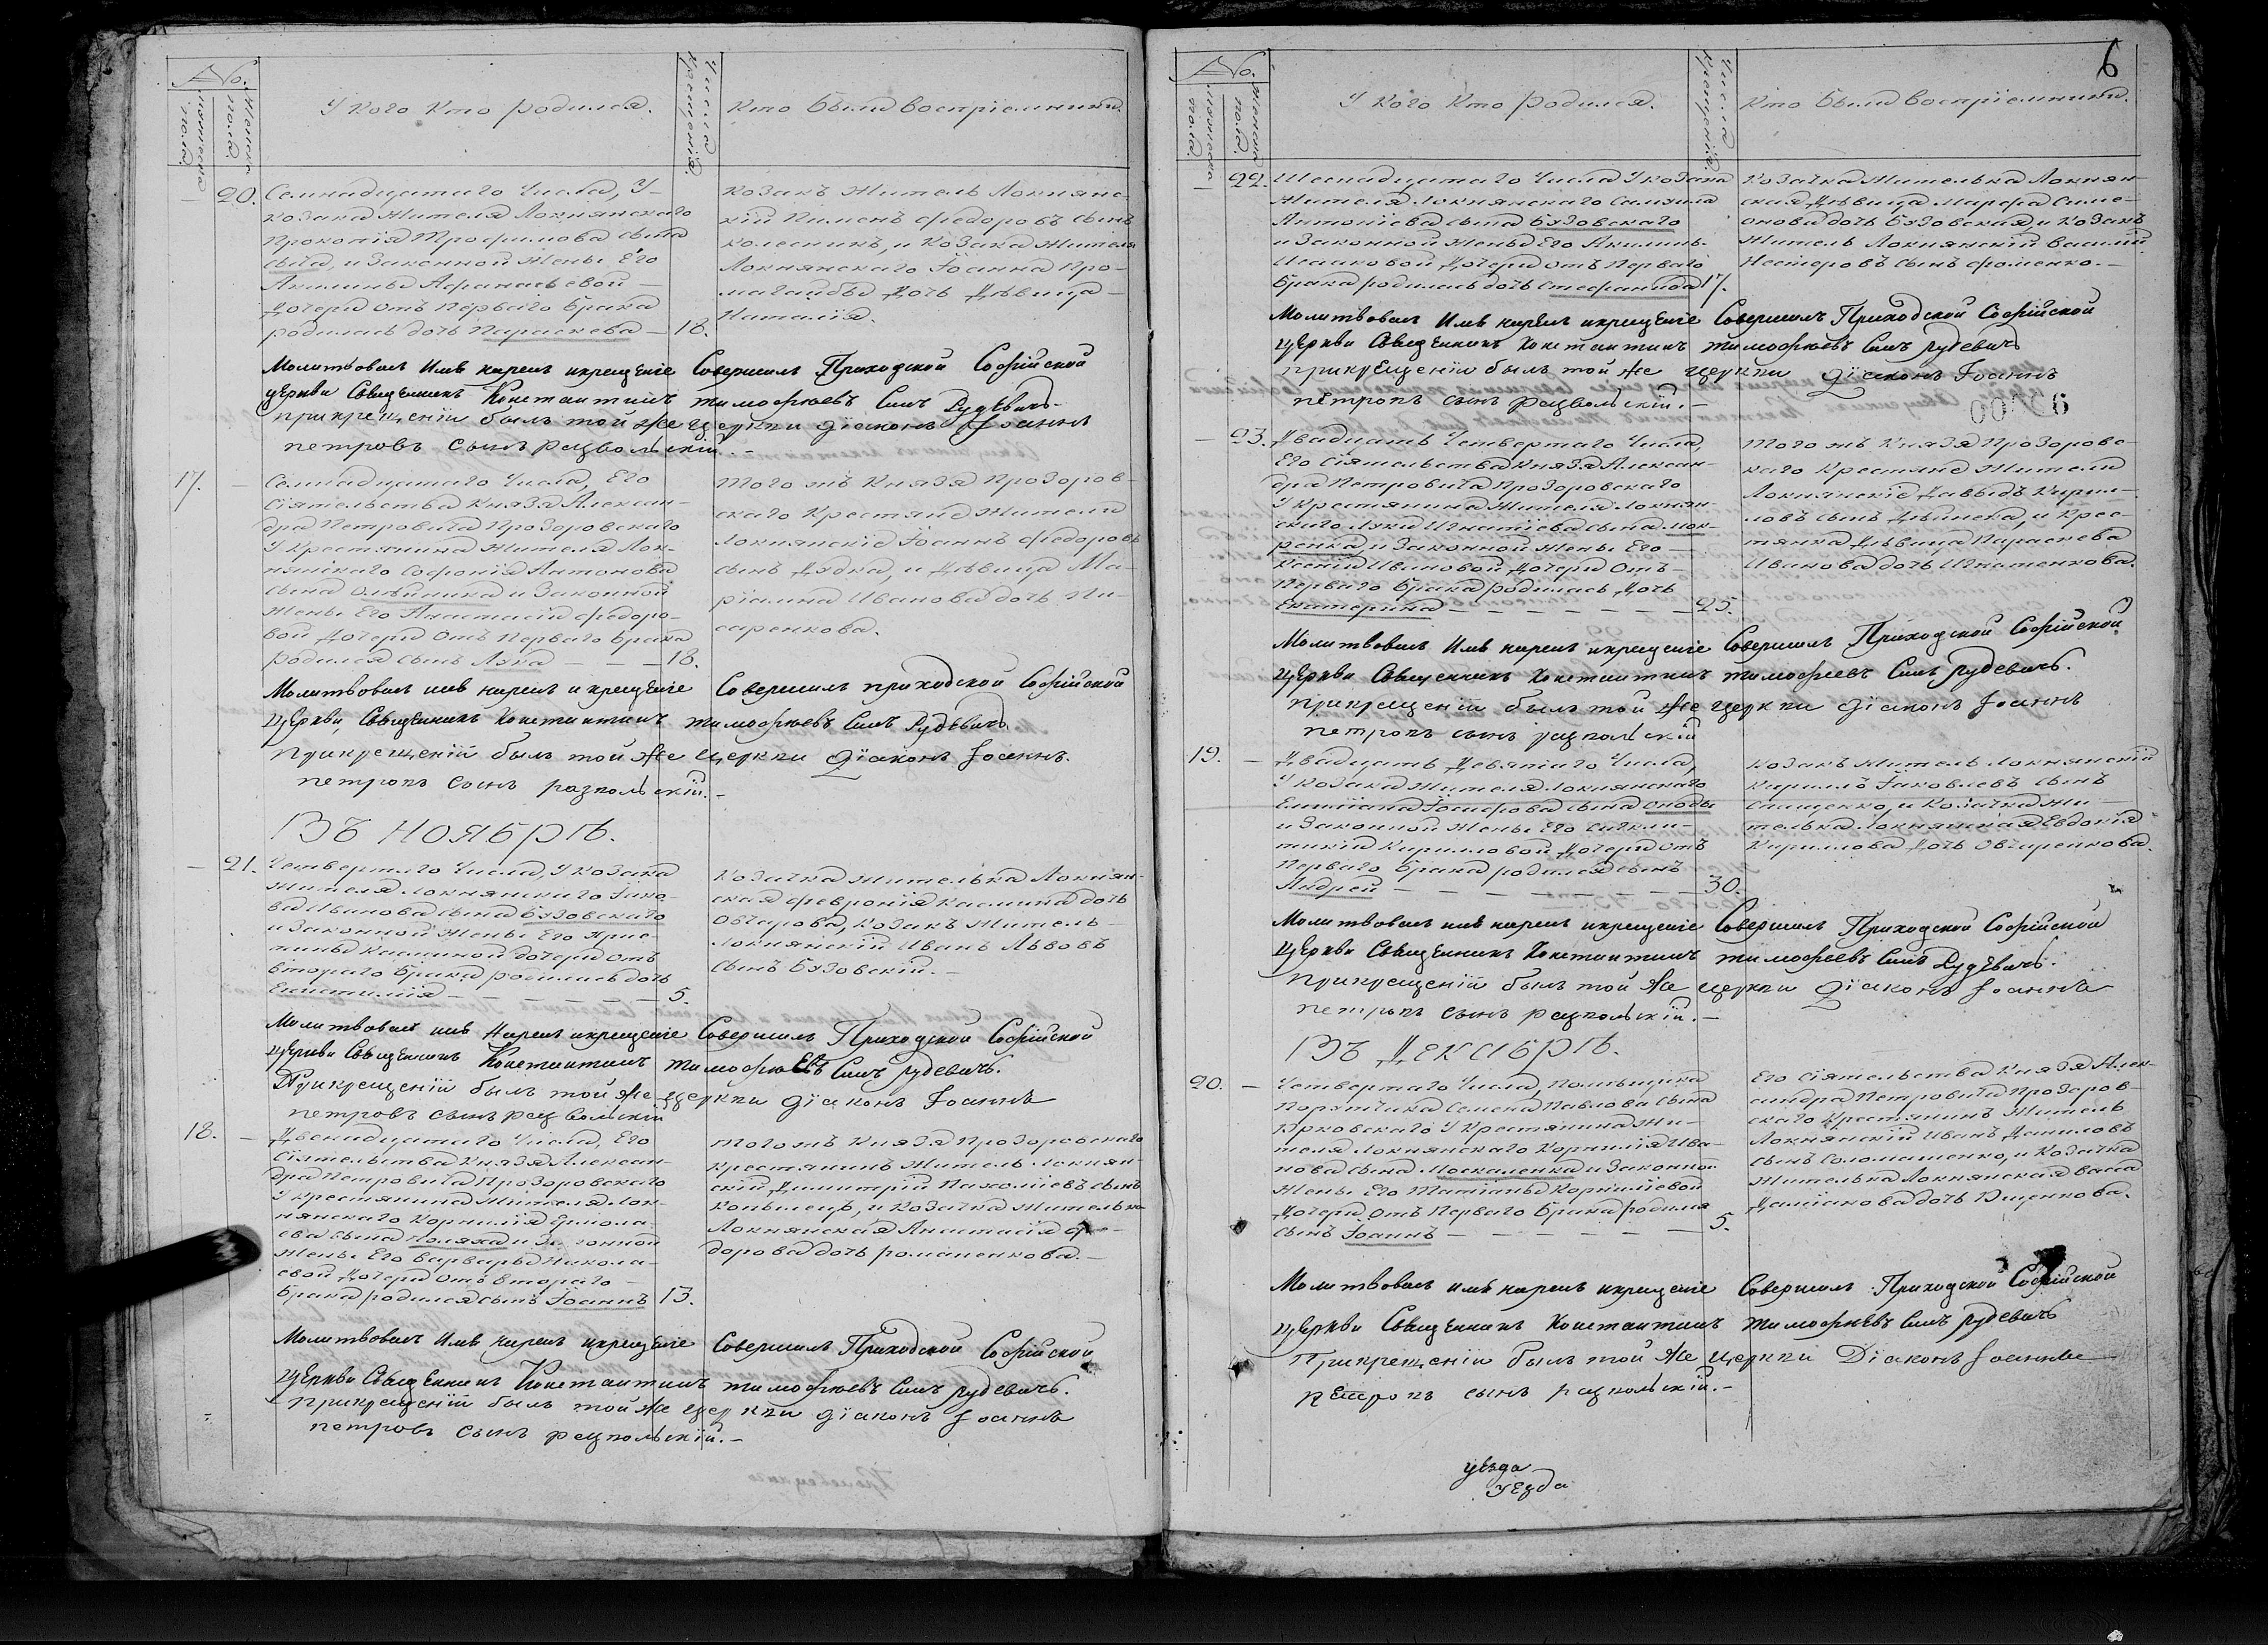 No.
мужеска пола.
женска пола.
У Кого Кто родился.
Числа Крещенія.
Кто Были воспріемники.
20. Семнадцатаго Числа, У
козака Жителя Локнянскаго
Прокопія Трофимова сына
и Законной Жены Его
Акилины Афанасьевой
Дочери отъ Перваго брака
родилась дочь Параскева — 18.
козакъ Житель Локнянс-
кій Пименъ Федоровъ сынъ
колесникъ, и Козака Жителя
Локнянскаго Іоанна Про-
дочь Дѣвица
Наталія.
Молитвовалъ Имѣ нарелъ икрещеніе Совершилъ Приходской Софійской
церкви Священникъ Константинъ тимофѣевъ Синъ Рудевичъ.
прикрещеніи былъ той же церкви діаконъ Іоаннъ
петровъ сынъ рацвольскій.
17. Семнадцатаго Числа, Его
Сіятельства Князя Алексан-
дра Петровича Прозоровскаго
У Крестянина Жителя Лок-
нянскаго Софонія Антонова
сына Олѣйника и Законной
Жены Его Анастасіи Федоро-
вой Дочери отъ Перваго брака
родился сынъ Лука — — — 18.
того жъ Князя Прозоров-
скаго Крестяне Жители
Локнянскіе Іоаннъ Федоровъ
сынъ Дядка, и Дѣвица Ма-
ріамна Иванова дочь Пи-
саренкова.
Молитвовалъ имѣ нарелъ и крещеніе Совершилъ приходской Софійской
церкви, Священникъ Константинъ тимофѣевъ Синъ Рудевичъ
прикрещеніи былъ той же церкви діаконъ Іоаннъ.
петровъ сынъ рацвольскій.
Въ Ноябрѣ.
21. Четвертаго Числа, У козака
Жителя Локнянскаго Іако-
ва Иванова сына Бузовскаго
и Законной Жены Его Хрис-
тины Касиной дочери отъ
втораго брака родилась дочь
— — — 5.
Козачка жителька Локнян-
ская Февронія Касмина дочь
Овчарова, козакъ Житель
Локнянскій Иванъ Львовъ
сынъ Бузовскій.
Молитвовалъ имѣ Нарелъ икрещеніе Совершилъ Приходской Софійской
церкви Священникъ Константинъ тимофѣевъ Синъ рудевичъ.
Прикрещеніи былъ той же церкви діаконъ Іоаннъ
петровъ сынъ рацвольскій
18. Двенадцатаго Числа, Его
Сіятельства Князя Алексан-
дра Петровича Прозоровскаго
У крестянина Жителя Лок-
нянскаго Корнилія Ермола-
ева сына Поляха и Законной
Жены Его Варвары Никола-
евой Дочери отъ втораго
брака родился сынъ Іоаннъ 13.
того жъ Князя Прозоровскаго
крестянинъ Житель Локнян-
скій Димитрій Пахоміевъ сынъ
Копылецъ, и Козачка Жителька
Локнянская Анастасія Фе-
дорова дочь романенкова.
Молитвовалъ Имѣ нарелъ икрещеніе Совершилъ Приходской Софійской
церкви Священникъ Константинъ тимофѣевъ Синъ рудевичъ.
прикрещеніи былъ той же церкви діаконъ Іоаннъ
петровъ сынъ рацвольскій.
6
No.
мужеска пола.
женска пола.
У Кого Кто родился.
Числа Крещенія.
Кто Были воспріемники.
22. Шеснадцатаго Числа У козака
Жителя Локнянскаго Самуила
Антоніева сына Бузовскаго
и Законной Жены Его Акилины
Исааковой Дочери отъ Перваго
брака родилась дочь Стефанида 17.
Козачка Жителька Локнян-
ская Дѣвица Марфа Симе-
онова дочь Бузовская, и Козакъ
Житель Локнянскій Василій
Нестеровъ сынъ Фоменко.
Молитвовалъ Имѣ нарелъ икрещеніе Совершилъ Приходской Софійской
церкви Священникъ Константинъ тимофѣевъ Синъ рудевичъ
прикрещеніи былъ той же церкви діаконъ Іоаннъ
петровъ сынъ рацвольскій.
23. Двадцать Четвертаго Числа,
Его Сіятельства Князя Алексан-
дра Петровича Прозоровскаго
У Крестянина Жителя Локнян-
скаго Луки Игнатіева сына Мок-
ренка, и Законной Жены Его
Ксеніи Ивановой Дочери отъ
Перваго брака родилась Дочь
Екатерина — — — 25.
того жъ Князя Прозоровс-
каго Крестяне Жители
Локнянскіе Давыдъ Кирил-
ловъ сынъ Дѣйнека, и Крес-
тянка Дѣвица Параскева
Иванова дочь Игнатенкова.
Молитвовалъ Имѣ нарелъ икрещеніе Совершилъ Приходской Софійской
церкви Священникъ Константинъ тимофеевъ Синъ рудевичъ.
прикрещеніи былъ той же церкви діаконъ Іоаннъ
петровъ сынъ рацвольскій
19. Двадцать Девятаго Числа,
У козака Жителя Локнянскаго
Іосифова сына
и Законной Жены Его Сикли-
тикіи Кирилловой Дочери отъ
Перваго брака родился сынъ
Андрей — — — 30.
козакъ Житель Локнянскій
Кириллъ Іаковлевъ сынъ
и Козачка Жи-
телька Локнянская Евдокія
Кириллова Дочь Овчаренкова.
Молитвовалъ имѣ нарелъ икрещеніе Совершилъ Приходской Софійской
церкви Священникъ Константинъ тимофѣевъ Синъ Рудевичъ.
прикрещеніи былъ той же церкви діаконъ Іоаннъ
петровъ сынъ рацвольскій.
Въ Декабрѣ.
20. Четвертаго Числа, Помѣщика
Порутчика Семена Павлова сына
Юрковскаго У Крестянина Жи-
теля Локнянскаго Корнилія Ива-
нова сына Москаленка и Законной
Жены Его Татіаны Корниліевой
Дочери отъ Перваго брака родился
сынъ Іоаннъ — — — 5.
Его Сіятельства Князя Алек-
сандра Петровича Прозоров-
скаго Крестянинъ Житель
Локнянскій Иванъ Даниловъ
сынъ Соломашенко, и Козачка
Жителька Локнянская Васса
Даміанова дочь Ющенкова.
Молитвовалъ имѣ нарелъ икрещеніе Совершилъ Приходской Софійской
церкви Священникъ Константинъ тимофѣевъ Синъ рудевичъ
Прикрещеніи былъ той же церкви Діаконъ Іоаннъ
петровъ сынъ рацвольскій.
уѣзда
уезда